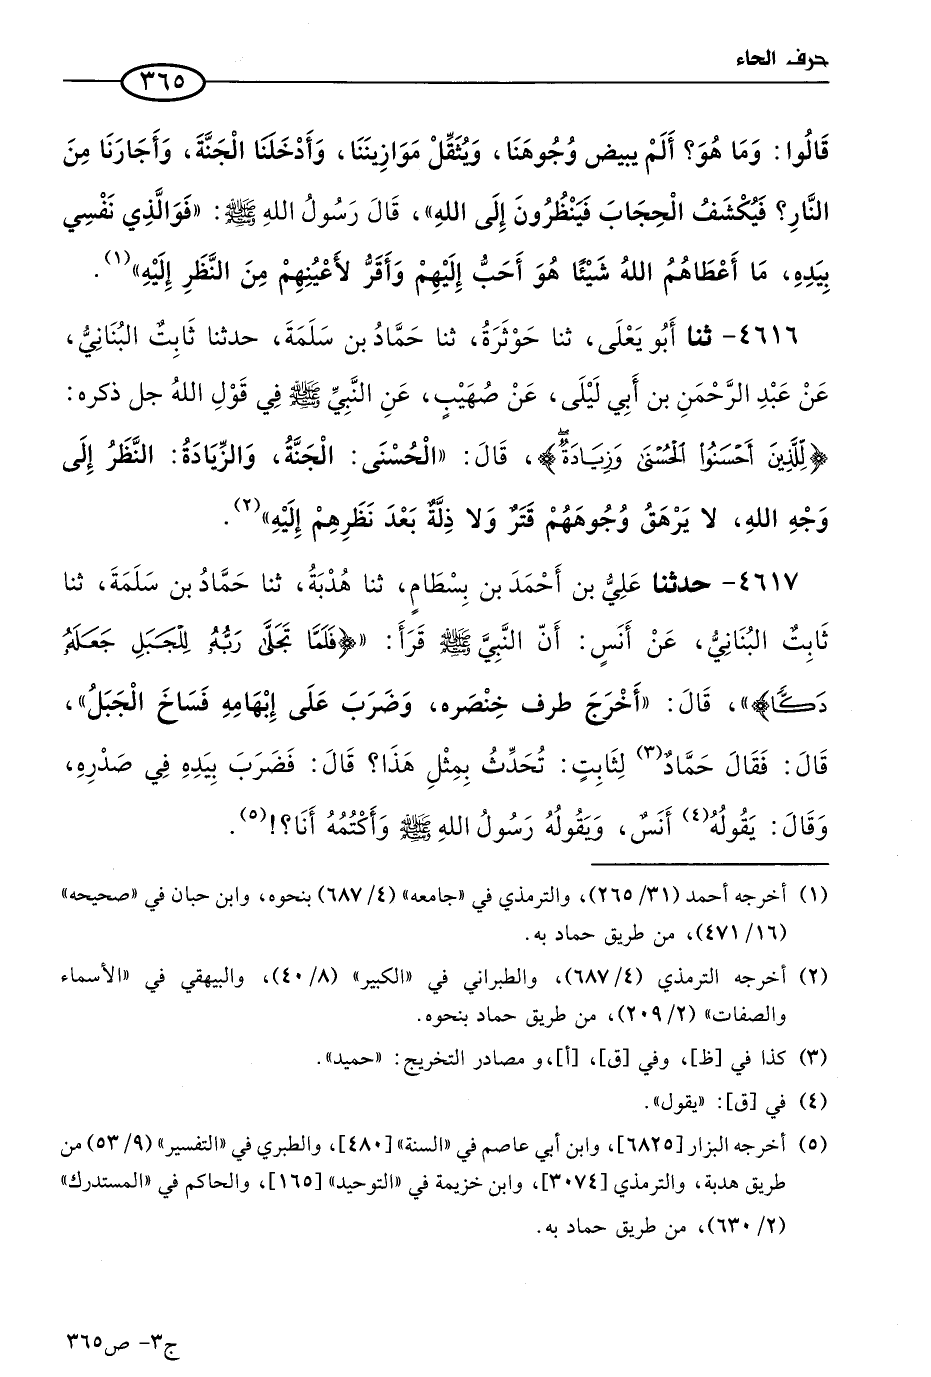 حرف الحاء
٣٦٥
قَالُوا: وَمَا هُوَ؟ أَلَمْ يبيض وُجُوهَنَا، وَيُثَقِّلْ مَوَازِينَنَا، وَأَدْخَلَنَا الْجَنَّةَ، وَأَجَارَنَا مِنَ
النَّارِ؟ فَيُكْشَفُ الْحِجَابَ فَيَنْظُرُونَ إِلَى اللهِ»، قَالَ رَسُولُ اللهِ ﷺ: «فَوَالَّذِي نَفْسِي
بِيَدِهِ، مَا أَعْطَاهُمُ اللهُ شَيْئًا هُوَ أَحَبُّ إِلَيْهِمْ وَأَقَرُّ لأَعْيُنِهِمْ مِنَ النَّظَرِ إِلَيْهِ»(١).
٤٦١٦- ثنا أَبُو يَعْلَى، ثنا حَوْثَرَةُ، ثنا حَمَّادُ بن سَلَمَةَ، حدثنا ثَابِتٌ البُنَانِيُّ،
عَنْ عَبْدِ الرَّحْمَنِ بن أَبِي لَيْلَى، عَنْ صُهَيْبٍ، عَنِ النَّبِيِّ ﷺ فِي قَوْلِ اللهُ جل ذكره:
﴿لِّلَّذِينَ أَحْسَنُواْ الْحُسْنَىٰ وَزِيَادَةٌۖ﴾، قَالَ: «الْحُسْنَى: الْجَنَّةُ، وَالزِّيَادَةُ: النَّظَرُ إِلَى
وَجْهِ اللهِ، لا يَرْهَقُ وُجُوهَهُمْ قَتَرٌ وَلا ذِلَّةٌ بَعْدَ نَظَرِهِمْ إِلَيْهِ»(٢).
٤٦١٧- حدثنا عَلِيُّ بن أَحْمَدَ بن بِسْطَامٍ، ثنا هُدْبَةُ، ثنا حَمَّادُ بن سَلَمَةَ، ثنا
ثَابِتٌ البُنَانِيُّ، عَنْ أَنَسٍ: أَنّ النَّبِيَّ ﷺ قَرَأَ: «﴿فَلَمَّا تَجَلَّىٰ رَبُّهُۥ لِلْجَبَلِ جَعَلَهُۥ
دَكًّا﴾»، قَالَ: «أَخْرَجَ طرف خِنْصَره، وَضَرَبَ عَلَى إِبْهَامِهِ فَسَاخَ الْجَبَلُ»،
قَالَ: فَقَالَ حَمَّادٌ(٣) لِثَابِتٍ: تُحَدِّثُ بِمِثْلِ هَذَا؟ قَالَ: فَضَرَبَ بِيَدِهِ فِي صَدْرِهِ،
وَقَالَ: يَقُولُهُ(٤) أَنَسٌ، وَيَقُولُهُ رَسُولُ اللهِ ﷺ وَأَكْتُمُهُ أَنَا؟!(٥).
(١) أخرجه أحمد (٣١/ ٢٦٥)، والترمذي في «جامعه» (٤/ ٦٨٧) بنحوه، وابن حبان في «صحيحه»
(١٦/ ٤٧١)، من طريق حماد به.
(٢) أخرجه الترمذي (٤/ ٦٨٧)، والطبراني في «الكبير» (٨/ ٤٠)، والبيهقي في «الأسماء
والصفات» (٢/ ٢٠٩)، من طريق حماد بنحوه.
(٣) كذا في [ظ]، وفي [ق]، [أ]،و مصادر التخريج: «حميد».
(٤) في [ق]: «يقول».
(٥) أخرجه البزار [٦٨٢٥]، وابن أبي عاصم في «السنة» [٤٨٠]، والطبري في «التفسير» (٩/ ٥٣) من
طريق هدبة، والترمذي [٣٠٧٤]، وابن خزيمة في «التوحيد» [١٦٥]، والحاكم في «المستدرك»
(٢/ ٦٣٠)، من طريق حماد به.
ج٣- ص٣٦٥